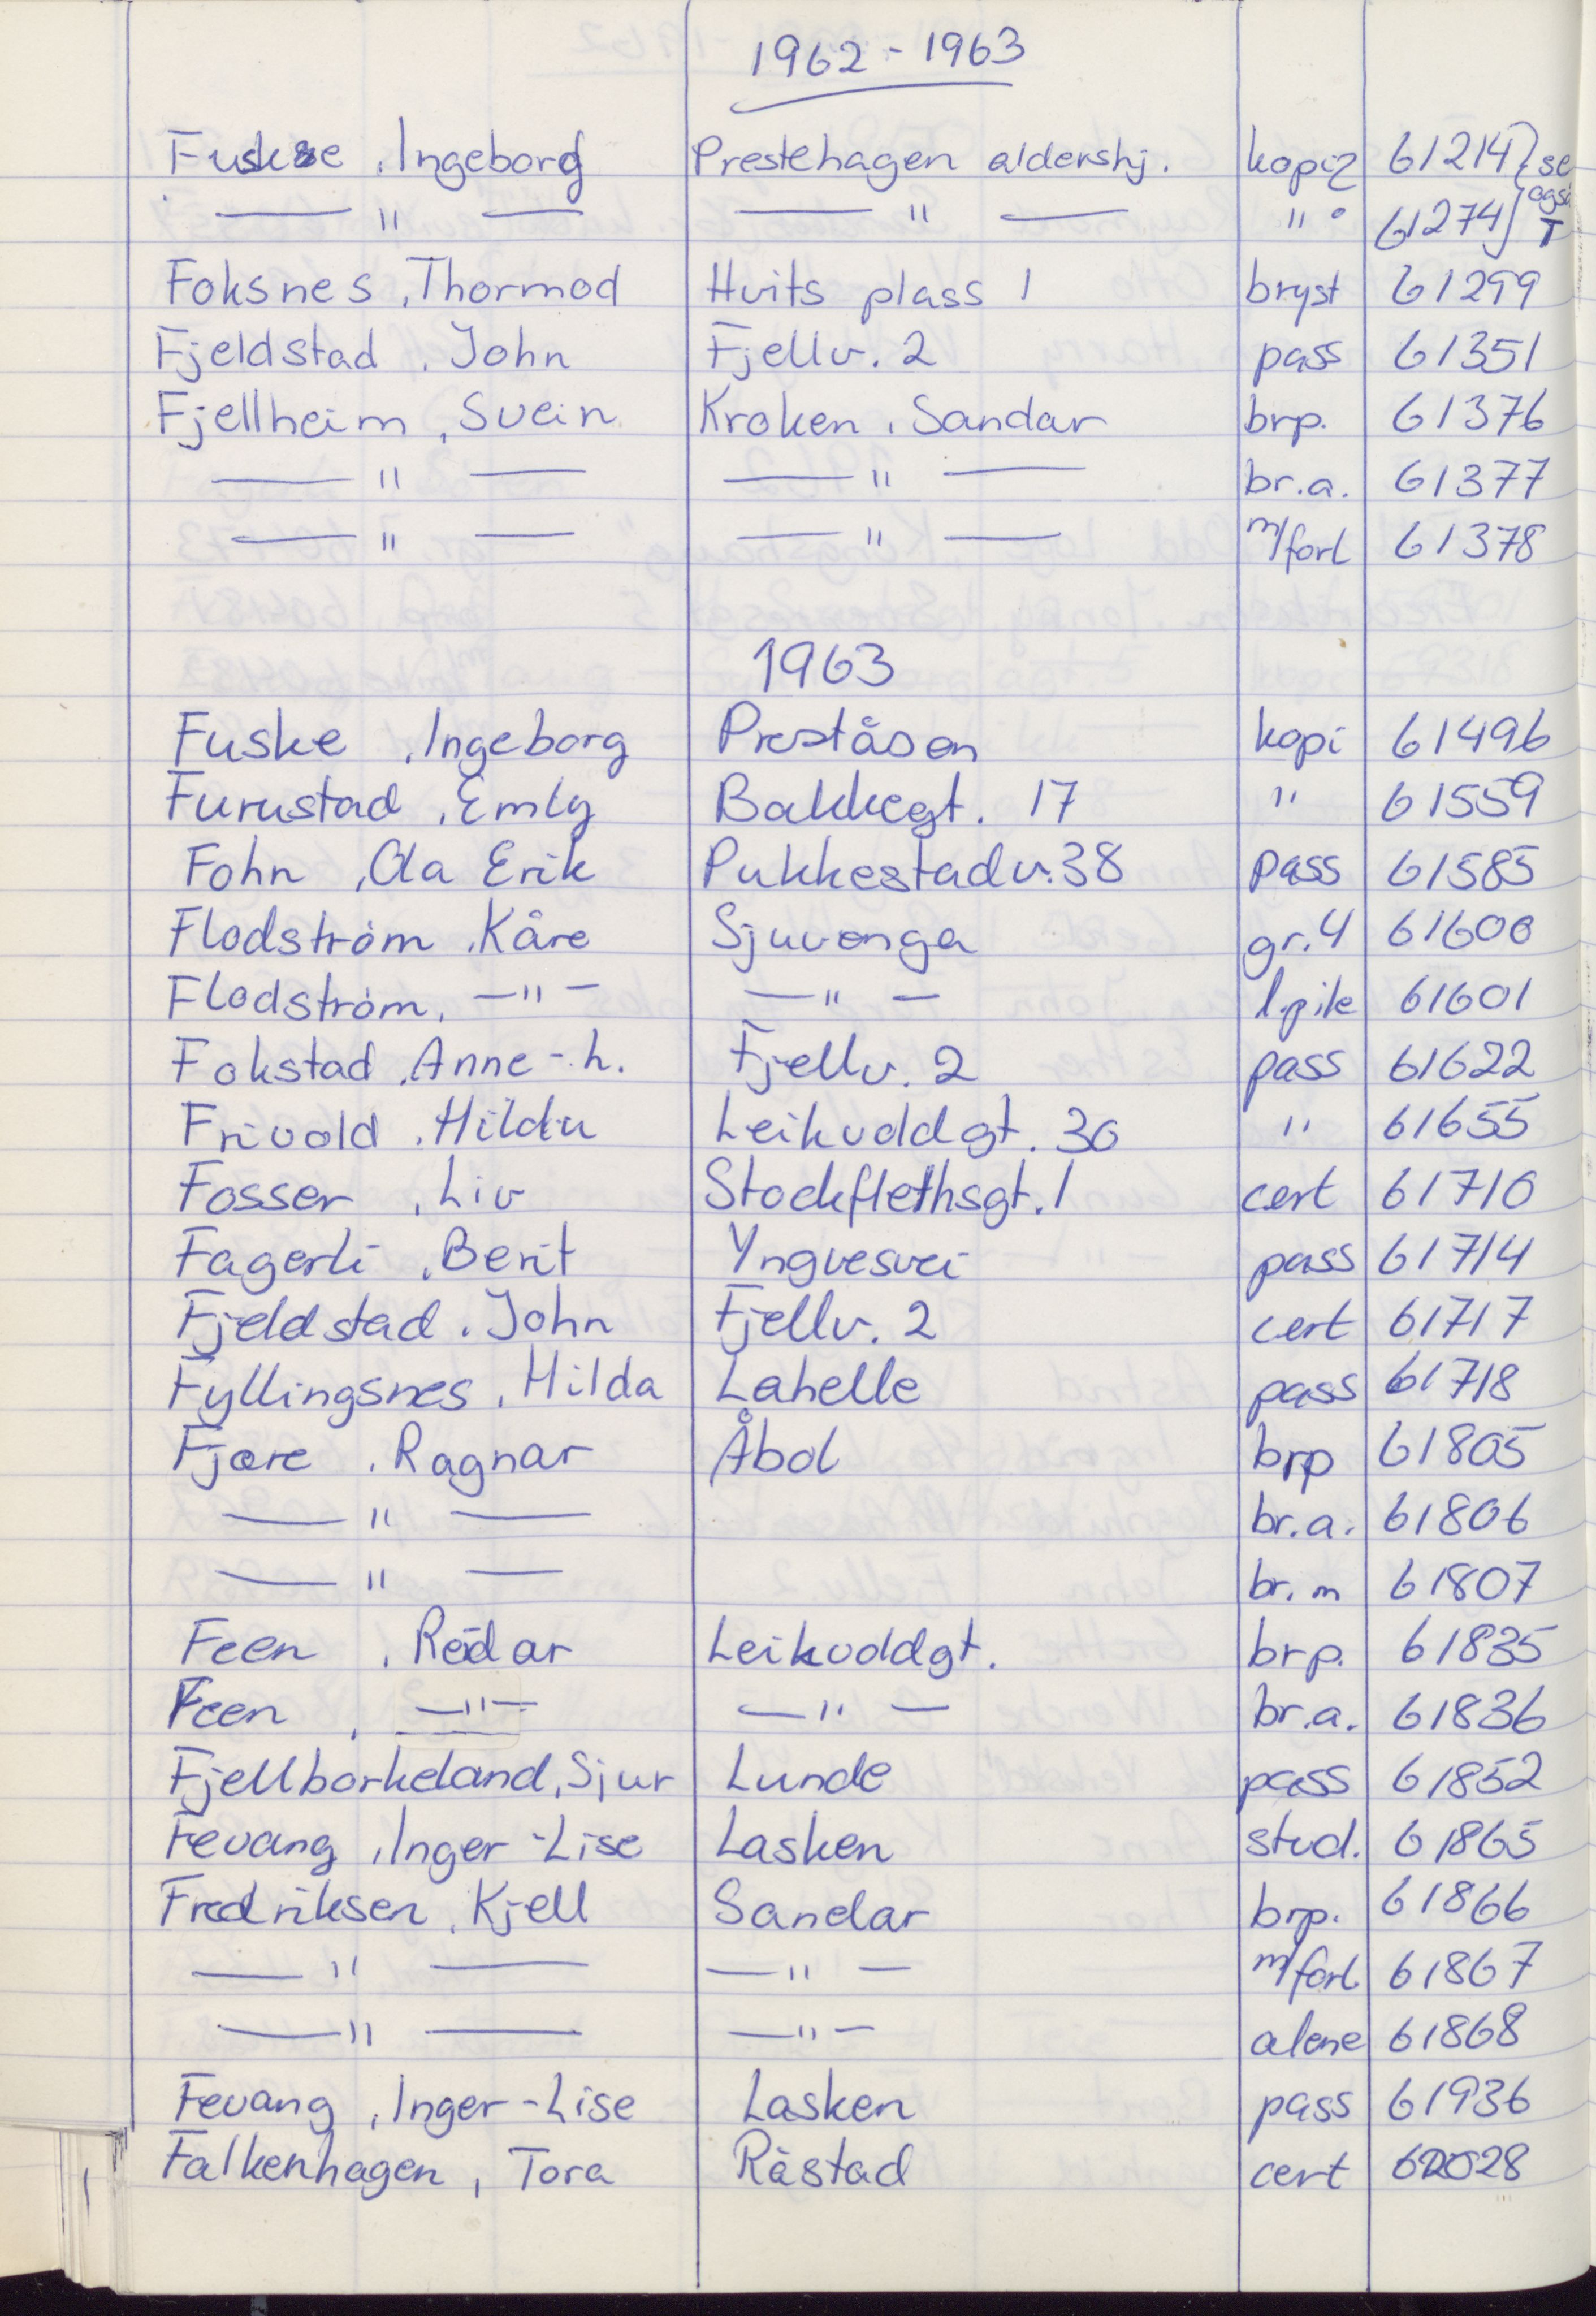 1962 - 1963
Fuskse , Ingeborg Prestehagen aldershj. kopi 61214 } se
— " — — " — " 61274 } også T
Foksnes , Thormod Hvits plass 1 bryst 61299
Fjeldstad , John Fjellv. 2 pass 61351
Fjellheim , Svein Kroken , Sandar brp. 61376
— " — — " — br.a. 61377
— " — — " — m/forl 61378
1963
Fuske , Ingeborg Preståsen kopi 61496
Furustad , Emly Bakkegt. 17 " 61559
Fohn , Ola Erik Pukkestadv. 38 pass 61585
Flodström , Kåre Sjuvenga gr. 4 61600
Flodström , — " — — " — l.pike 61601
Fokstad , Anne - h. Fjellv. 2 pass 61622
Frivold , Hildu Leikvoldgt. 30 " 61655
Fosser , Liv Stockflethsgt. 1 cert 61710
Fagerli , Berit Yngvesvei pass 61714
Fjeldstad , John Fjellv. 2 cert 61717
Fyllingsnes , Hilda Lahelle pass 61718
Fjære , Ragnar Åbol brp 61805
— " — br.a. 61806
— " — br. m 61807
Feen , Reidar Leikvoldgt. brp. 61835
Feen , — " — — " — br.a. 61836
Fjellborkeland, Sjur Lunde pass 61852
Fevang , Inger - Lise Lasken stud. 61865
Fredriksen , Kjell Sandar brp. 61866
— " — — " — m/forl 61867
— " — — " — alene 61868
Fevang , Inger - Lise Lasken pass 61936
Falkenhagen , Tora Råstad cert 62028